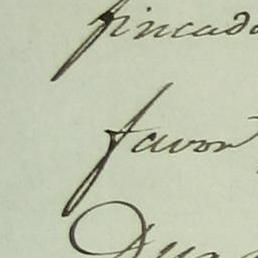 fincado
favor
Dua